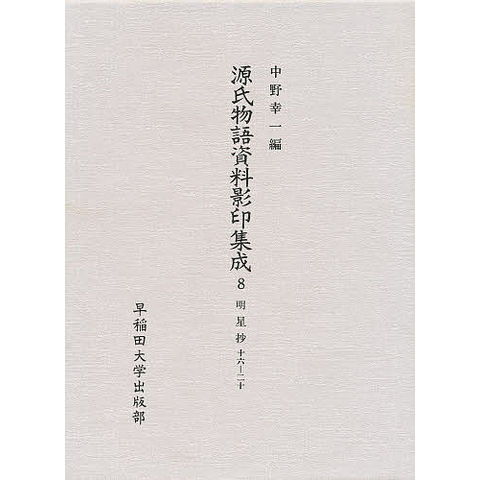 中野幸一編
源氏物語資料影印集成 8 明星抄 十六―二十
早稲田大学出版部